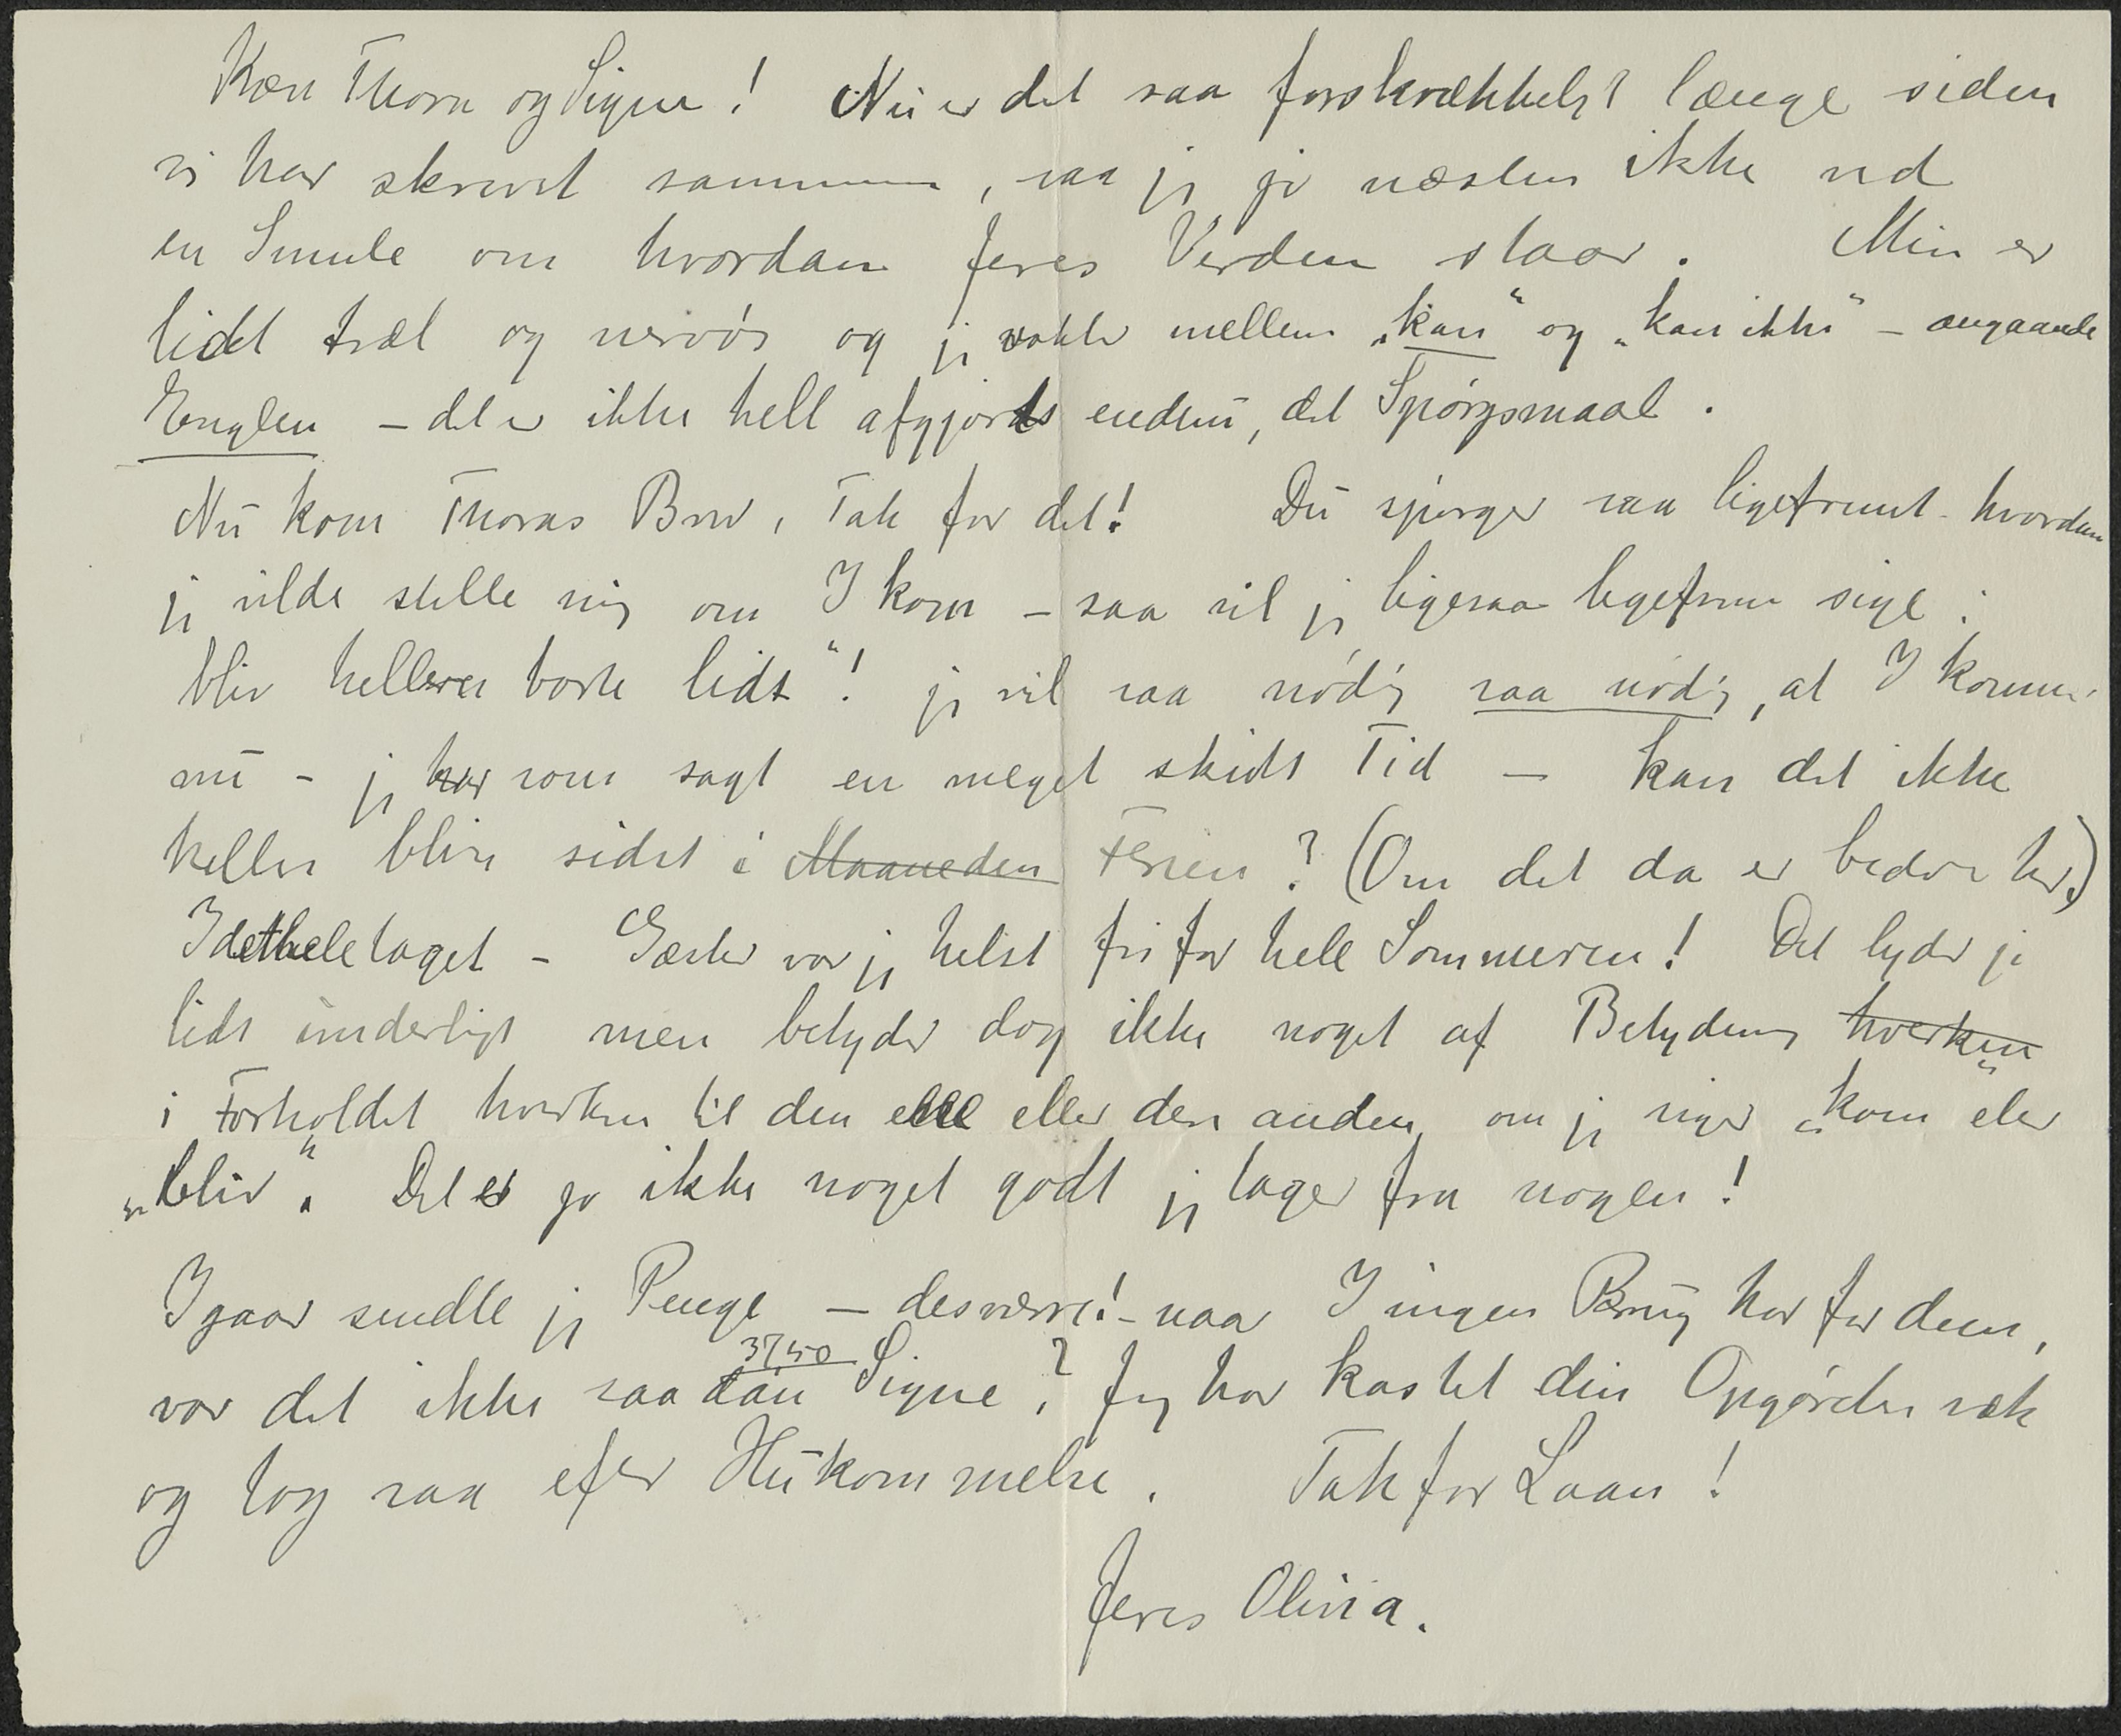 Kære Thora og Signe! Nu er det saa forskrækkeligt længe siden
vi har skrevet sammen, saa jeg jo næsten ikke ved
en Smule om hvordan Jeres Verden staar. Min er
lidt træt og nervøs og jeg vakler mellem „kan“ og „kan ikke“ – angaaende
Englen – det er ikke helt afgjordt endnu, det Spørgsmaal.
Nu kom Thoras Brev, Tak for det! Du spørger saa ligefremt hvordan
jeg vilde stille mig om I kom – saa vil jeg ligesaa ligefrem sige:
bliv hellere borte lidt“! jeg vil saa nødig saa nødig, at I kommer
nu – jeg har som sagt en meget skidt Tid – kan det ikke
heller blive sidst i Maaneden Ferien? (Om det da er bedre her.)
Idetheletaget – Gæster var jeg helst fri for hele Sommeren! Det lyder jo
lidt underligt men betyder dog ikke noget af Betydning hverken
i Forholdet hverken til den elle eller den anden, om jeg siger „kom“ eller
„bliv“. Det er jo ikke noget godt jeg tager fra nogen!
Igaar sendte jeg Penge – desværre! – naar I ingen Brug har for dem,
37,50
var det ikke saadan Signe? Jeg har kastet din Opgørelse væk
og tog saa efter Hukommelse. Tak for Laan!
Jeres Olivia.